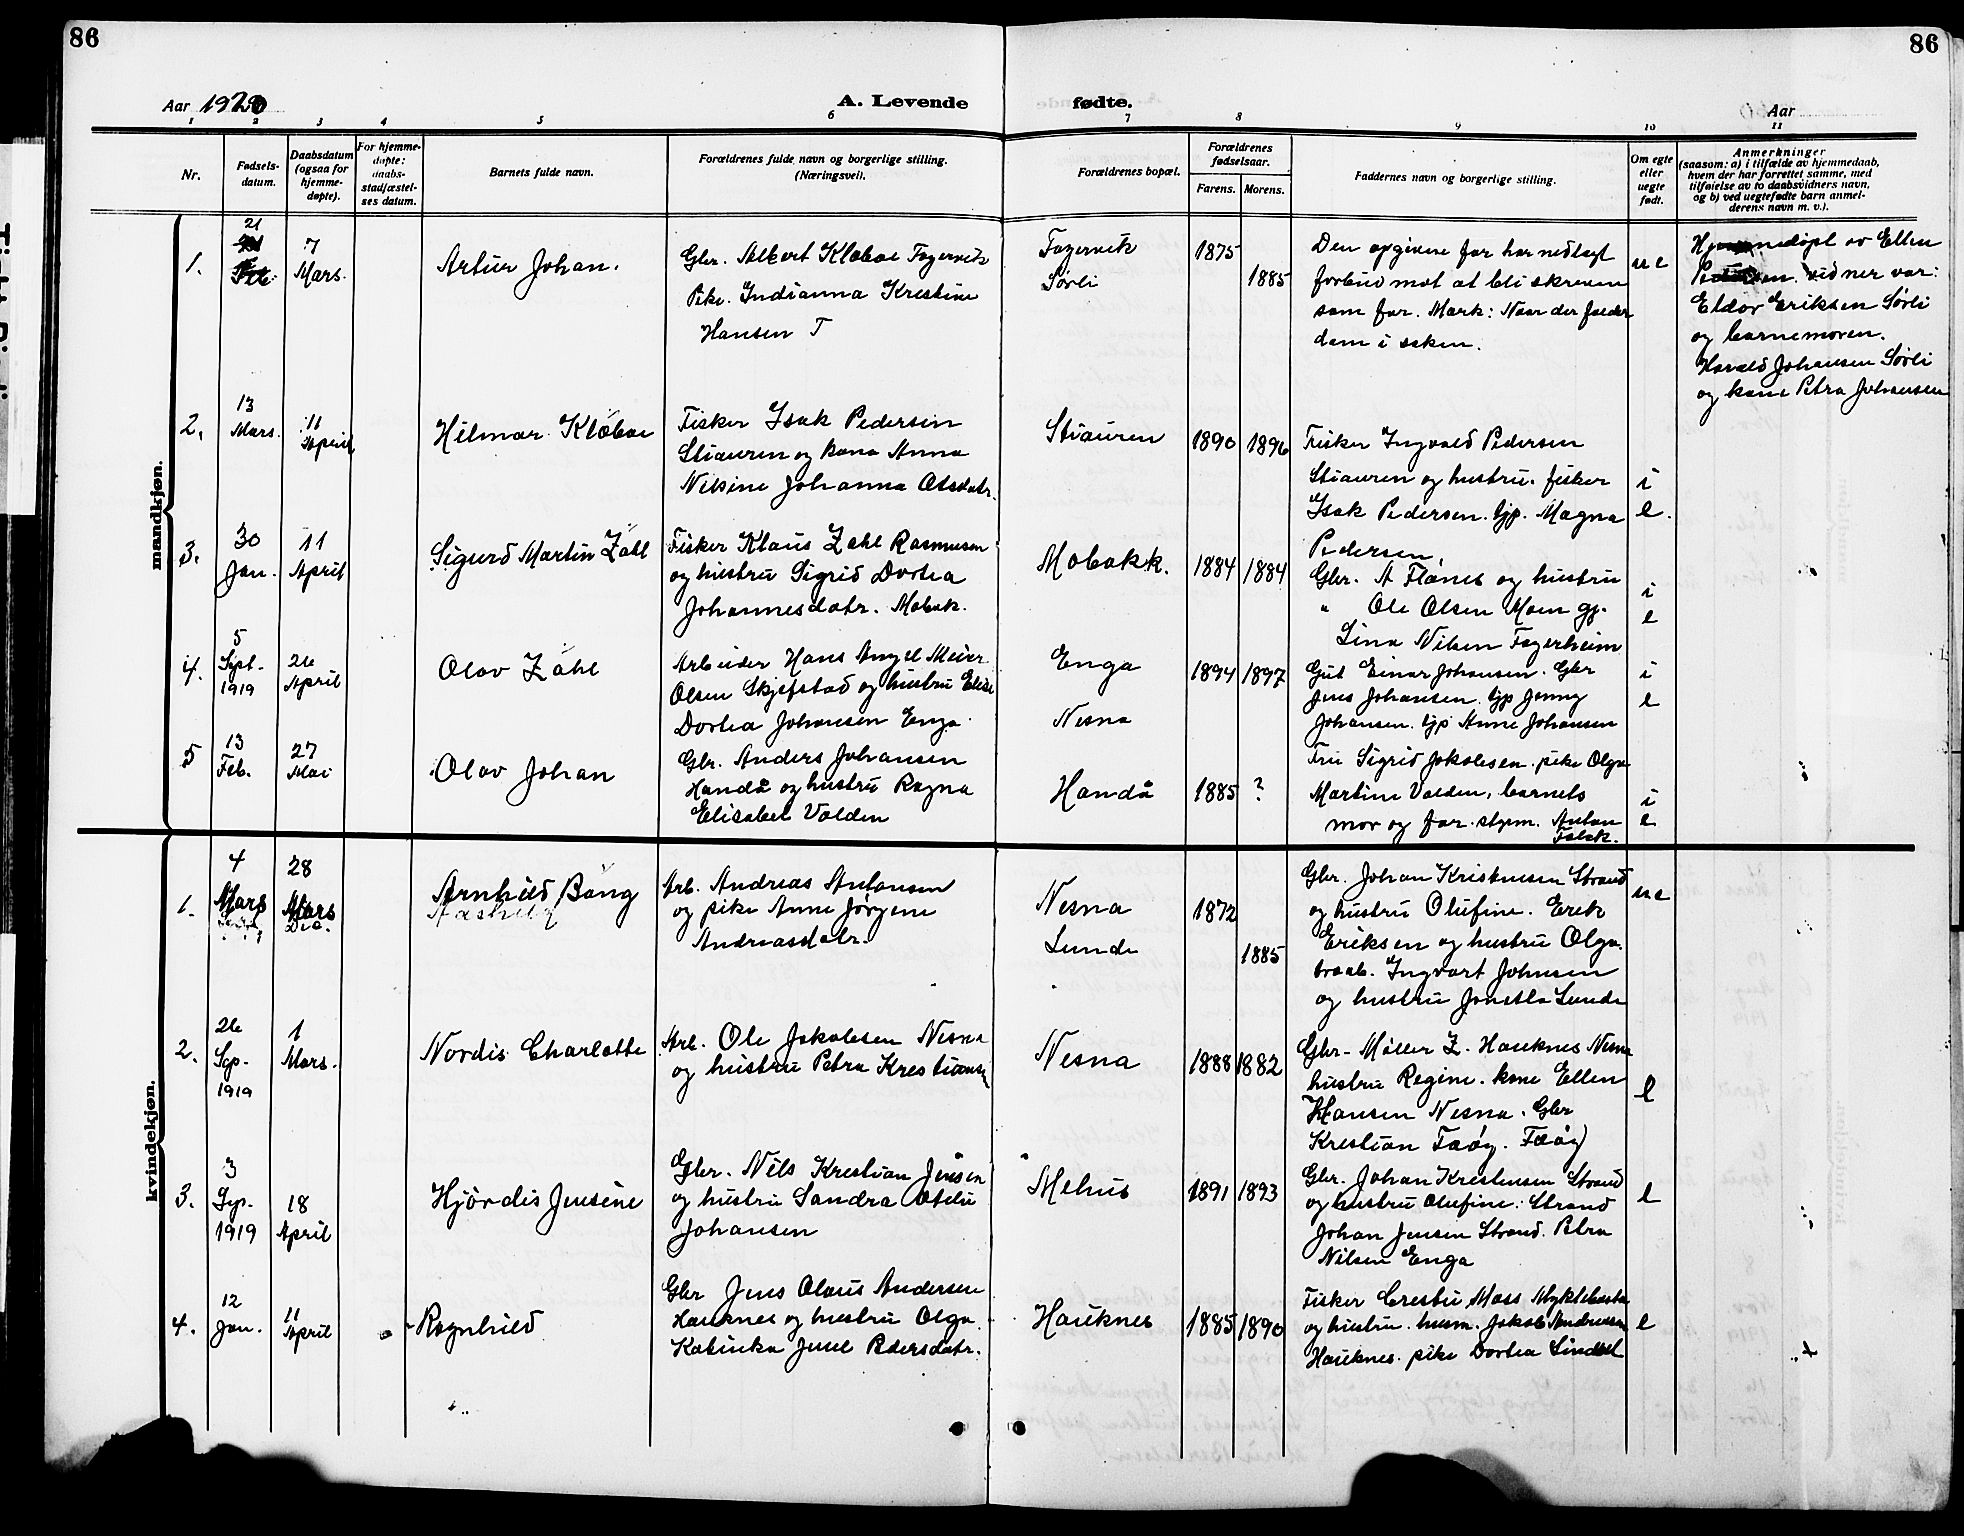 86
86
Aar 1920
A. Levende
fødte.
Aar
1
2
3
4
5
6
7
8
9
10
11
Nr.
Fødsels-
datum.
Daabsdatum
(ogsaa for
hjemme-
døpte).
For hjemme-
døpte:
daabs-
stadfæstel-
ses datum.
Barnets fulde navn.
Forældrenes fulde navn og borgerlige stilling.
(Næringsvei).
Forældrenes bopæl.
Forældrenes
fødselsaar.
Farens.
Morens.
Faddernes navn og borgerlige stilling.
Om egte
eller
uegte
født.
Anmerkninger
(saasom: a) i tilfælde av hjemmedaab,
hvem der har forrettet samme, med
tilføielse av to daabsvidners navn,
og b) ved uegtefødte barn anmel-
derens navn m. v.).
mandkjøn.
1.
21
Feb.
7
Mars.
Artur Johan.
Gbr. Albert Klæboe Fagervik
Pike. Indianna Kristine
Hansen
Fagervik
Sørli
1875
1885
Den opgivne far har nedlagt
forbud mot at bli skreven
som far. Mark: Naar der falder
dom i saken.
ue
Hjemmedøpt av Ellen
Pedersen. vidner var:
Eldor Eriksen Sørli
og barnemoren.
Harald Johansen Sørli
og kone Petra Johansen
2.
13
Mars.
11
April
Hilmar Klæboe
Fisker Isak Pedersen
Stiauren og kona Anna
Nilsine Johanna Olsdatr.
Stiauren
1890
1896
Fisker Ingvald Pedersen
Stiauren og hustru. fisker
Isak Pedersen. Gjp. Magna
Pedersen.
i
e.
3.
30
Jan.
11
April
Sigurd Martin Zahl
Fisker Klaus Zahl Rasmusen
og hustru Sigrid Dortea
Johannesdatr. Mobak.
Mobakk.
1884
1884
Gbr. A Flånes og hustru
" Ole Olsen Moen gp.
Lina Nilsen Fagerheim
i
e
4.
5
Sept.
1919
26
April
Olav Zahl
Arbeider Hans Angel Meier
Olsen Skjefstad og hustru Elise
Dortea Johansen Enga.
Enga
Nesna
1894
1897
Gut Einar Johansen. Gbr
Jens Johansen. Gjp Jenny
Johansen. Gjp Anne Johansen
i
e
5
13
Feb.
27
Mai
Olav Johan
Gbr. Anders Johansen
Handå og hustru Ragna
Elisabet Valden
Handå
1885
?
Fru Sigrid Jakobsen. pike Olga
Martine Valden, barnets
mor og far. Anton
Falck.
i
e
kvindekjøn.
1.
4
Mars
28
Mars
Arnhild Bang
Arb. Andreas Antonsen
og pike Anne Jørgine
Andreasdatr.
Nesna
Lunde
1872
1885
Gbr. Johan Kristensen Strand
og hustru Olufine. Erik
Eriksen og hustru Olga.
Ingvart Johnsen
og hustru Jonetta Lunde
ue
2.
26
Sep.
1919
1
Mars.
Nordis Charlotte
Arb. Ole Jakobsen Nesna
og hustru Petra Krestiansen
Nesna
1888
1882
Gbr. Møller Z. Hauknes Nesna
hustru Regine. kone Ellen
Hansen Nesna. Gbr
Krestian Faøy. Faøy
e
3.
3
Sep.
1919
18
April
Hjørdis Jensine
Gbr. Nils Krestian Jensen
og hustru Sandra Otelie
Johansen
Mehus
1891
1893
Gbr. Johan Krestensen Strand
og hustru Olufine. Strand
Johan Jensen Strand. Petra
Nilsen Enga
e
4.
12
Jan.
11
April
Ragnhild
Gbr Jens Olaus Andersen
Hauknes og hustru Olga
Katinka Juul Pedersdatr.
Hauknes
1885
1890
Fisker Moss Myklebostad
og hustru. husm. Jakob Andersen
Hauknes. pike Dortea Lindset
e